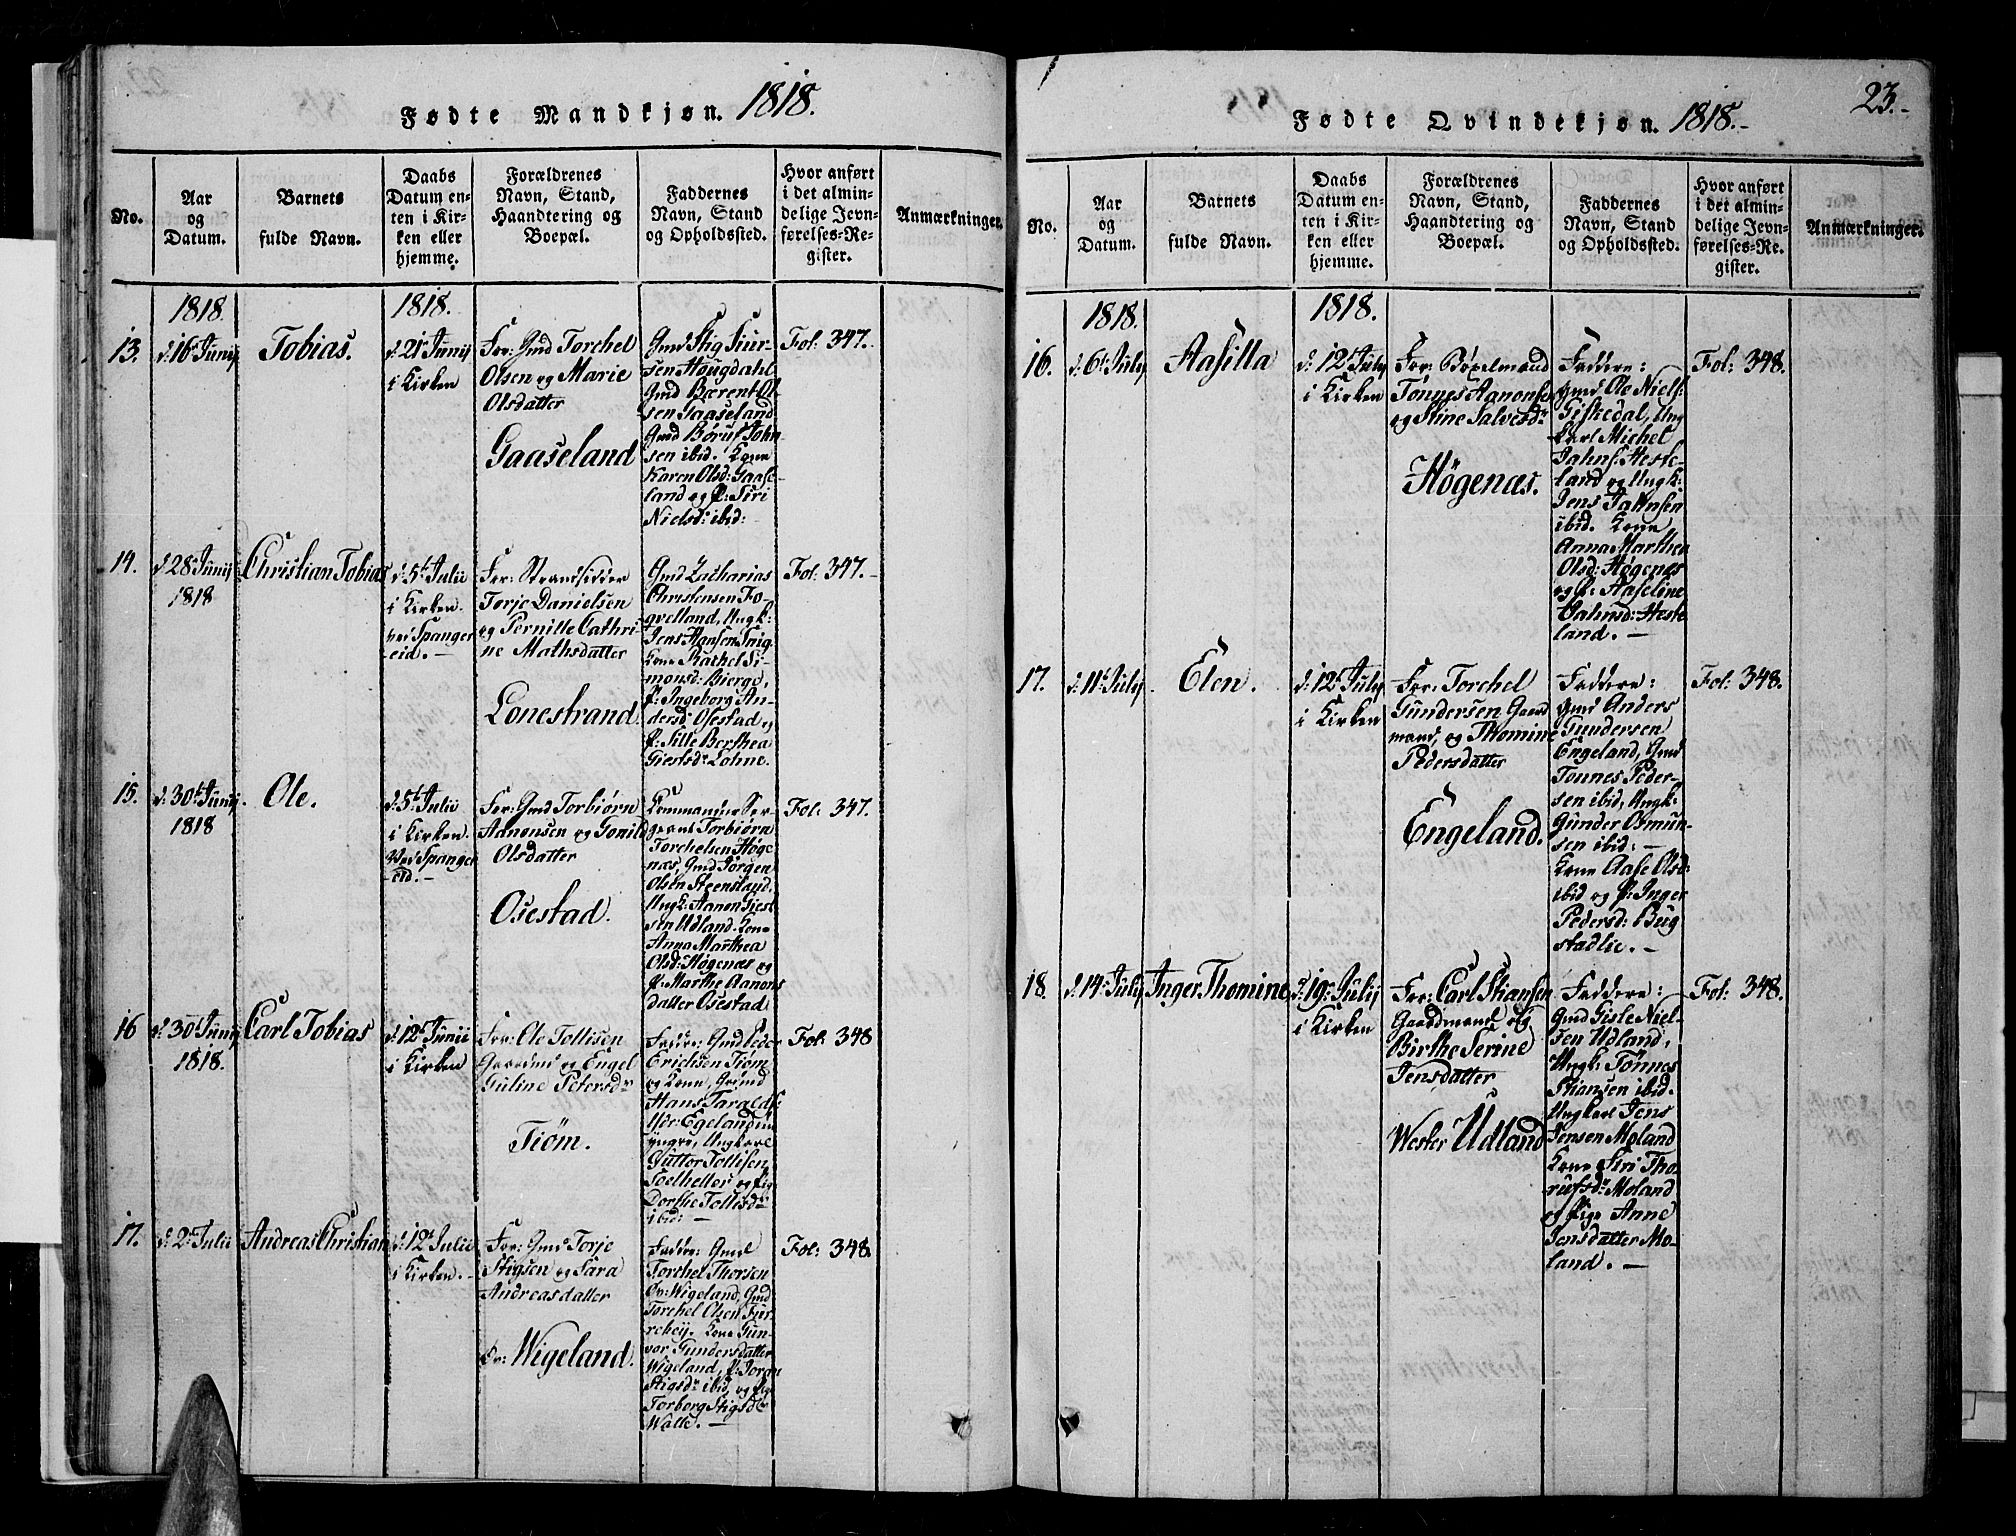 Fødte Mandkjøn. 1818.
No.
Aar
og
Datum.
Barnets
fulde Navn.
Daabs
Datum en-
ten i Kir-
ken eller
hjemme.
Forældrenes
Navn, Stand,
Haandtering og
Boepæl.
Faddernes
Navn, Stand
og Opholdssted.
Hvor anført
i det almin-
delige Jevn-
førelses-Re-
gister.
Anmærkninger.
1818.
13.
d. 16 Junij
Tobias.
1818.
d. 21 Junij
i Kirken
For: Gmd Torchel
Olsen og Marie
Olsdatter
Gaaseland
Gmd Stig Siur-
sen Høugdahl
Gmd Bærent Ol-
sen Gaaseland
Gmd Børuf John-
sen ibid. Kone
Karen Olsd: Gaase-
land og P: Siri
Nielsd: ibid:
Fol: 347.
14.
d. 28 Junij
1818
Christian Tobias
d. 5t Julii
i Kirken
ved Spanger
eid.
For: Strandsidder
Torje Danielsen
og Pernille Cathri
ne Mathsdatter
Lonestrand.
Gmd Zacharias
Christensen Fo-
gvelland, Ungk:
Jens Hansen Snig
Kone Rachel Si-
monsd: Bierge,
P: Ingeborg An-
dersd: Osestad og
P: Sille Berthea
Giertsdr Lohne.
Fol: 347.
15.
d. 30t Junij
1818
Ole.
d. 5t Julii
i Kirken
Ved Spanger
eid.
For: Gmd Torbiørn
Aanonsen og Gonild
Olsdatter
Osestad.
Commandeer Ser-
geant Torbiørn
Torchelsen Høge
næs, Gmd Jørgen
Olsen Steensland,
Ungk: Aanon Giert
sen Udland. Kone
Anna Marthea
Olsd: Høgenæs og
P: Marthe Aanons
datter Osestad
Fol: 347.
16
d. 30t Junij
1818.
Carl Tobias
d. 12t Junii
i Kirken
For: Ole Tollisen
Gaardmd og Engel
Guline Petersdr
Tiøm.
Faddr: Gmd Peder
Erichsen Tiøm
og Kone, Gmd
Hans Taralds:
Ydr: Egeland
yngre, Ungkarl
Guttor Tollisen
og Pig
Dorthe Tollisdr
ibid:
Fol: 348
17.
d. 2t Julii
Andreas Christian
d. 12t Julii
i Kirken.
For: Gmd Torje
Stigsen og Sara
Andreasdatter
Øv: Wigeland.
Faddr: Gmd
Torchel Thorsen
Øv: Wigeland, Gmd
Torchel Olsen Fur-
Kone Gun-
vor Gundersdatter
Wigeland, P: Joran
Stigsdr ibid, og Pige
Torborg Stigsdr
Walle.
Fol: 348.
23.
Fødte Qvindekjøn. 1818.
No.
Aar
og
Datum.
Barnets
fulde Navn.
Daabs
Datum en-
ten i Kir-
ken eller
hjemme.
Forældrenes
Navn, Stand,
Haandtering og
Boepæl.
Faddernes
Navn, Stand
og Opholdssted.
Hvor anført
i det almin-
delige Jevn-
førelses-Re-
gister.
Anmærkninger.
1818.
16.
d. 6t July
Aasilla
1818.
d. 12t July
i Kirken
For: Bøxelmand
Tønnes Aanonsen
og Stine Salvesdr
Høgenæs.
Faddere:
Gmd Ole Niels:
Giskedal, Ung
karl Michel
Jahns: Heste-
land og Ungk:
Jens Jahnsen
ibid. Kone
Anna Marthea
Olsd: Høgenæs
og P: Aaseline
Jahnsd: Heste
land.
Fol: 348.
17.
d. 11t July
Elen.
d. 12t July
i Kirken
For: Torchel
Gundersen Gaard
mand, og Thomine
Pedersdatter
Engeland.
Faddere:
Gmd Anders
Gundersen
Engeland, Gmd
Tønnes Peder-
sen ibid, Ungk:
Gunder Osmun-
sen ibid:
Kone Aase Olsd:
ibid og P: Inger
Pedersd: Berg
stadlie.
Fol: 348.
18.
d. 14t July
Inger Thomine
d. 19t July
i Kirken
For: Carl Stiansen
Gaardmand og
Birthe Serine
Jensdatter
Wester Udland
Faddere:
Gmd Gisle Niel-
sen Udland,
Ungk: Tønnes
Stiansen ibid.
Ungkarl Jens
Jensen Moland
Kone Siri Tho-
rufsdr Moland
og Pige Anne
Jensdatter Mo-
land.
Fol: 348.